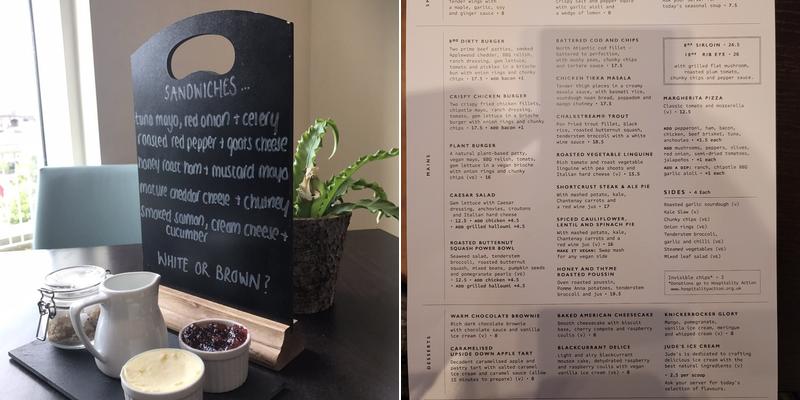 SANDWICHES...
tuna mayo, red onion + celery
roasted red pepper + goats cheese
honey roast ham + mustard mayo
mature cheddar cheese + chutney
smoked salmon, cream cheese +
cucumber
WHITE OR BROWN?
Tender wings with
a maple, garlic, soy
and ginger sauce • 8
Crispy salt and pepper
with garlic aioli and
a wedge of lemon • 8
Ask your server for
today's seasonal soup • 7.5
MAINS
DIRTY BURGER
Two prime beef patties, smoked
Applewood cheddar, BBQ relish,
ranch dressing, gem lettuce,
tomato and pickles in a brioche
bun with onion rings and chunky
chips • 17.5 • ADD bacon +1
CRISPY CHICKEN BURGER
Two crispy fried chicken fillets,
chipotle mayo, ranch dressing,
tomato, gem lettuce in a brioche
burger with onion rings and chunky
chips • 17.5 • ADD bacon +1
PLANT BURGER
A natural plant-based patty,
vegan mayo, BBQ relish, tomato,
gem lettuce in a vegan brioche
with onion rings and chunky
chips (vg) • 16
CAESAR SALAD
Gem lettuce with Caesar
dressing, anchovies, croutons
and Italian hard cheese
• 12.5 • ADD chicken +4.5
• ADD grilled halloumi +4.5
ROASTED BUTTERNUT
SQUASH POWER BOWL
Seaweed salad, tenderstem
broccoli, roasted butternut
squash, mixed beans, pumpkin seeds
and pomegranate pearls (vg)
• 12.5 • ADD chicken +4.5
• ADD grilled halloumi +4.5
BATTERED COD AND CHIPS
North Atlantic cod fillet –
battered to perfection,
with mushy peas, chunky chips
and tartare sauce • 17.5
CHICKEN TIKKA MASALA
Tender thigh pieces in a creamy
masala sauce, with basmati rice,
sourdough naan bread, poppadom and
mango chutney • 17.5
CHALKSTREAM® TROUT
Pan fried trout fillet, black
rice, roasted butternut squash,
tenderstem broccoli with a white
wine sauce • 18.5
ROASTED VEGETABLE LINGUINE
Rich tomato and roast vegetable
linguine with pea shoots and
Italian hard cheese (v) • 15.5
SHORTCRUST STEAK & ALE PIE
With mashed potato, kale,
Chantenay carrots and
a red wine jus • 17
SPICED CAULIFLOWER,
LENTIL AND SPINACH PIE
With mashed potato, kale,
Chantenay carrots and a
red wine jus (v) • 16
MAKE IT VEGAN: Swap mash
for any vegan side
HONEY AND THYME
ROASTED POUSSIN
Oven roasted poussin,
Pomme Anna potatoes, tenderstem
broccoli and jus • 19.5
8oz SIRLOIN • 26.5
10oz RIB EYE • 28
with grilled flat mushroom,
roasted plum tomato,
chunky chips and pepper sauce.
MARGHERITA PIZZA
Classic tomato and mozzarella
(v) • 12.5
ADD pepperoni, ham, bacon,
chicken, beef brisket, tuna,
anchovies • +1.5 each
ADD mushrooms, peppers, olives,
red onion, semi-dried tomatoes,
jalapeños • +1 each
ADD A DIP: ranch, chipotle BBQ
garlic aioli • +1 each
SIDES • 4 Each
Roasted garlic sourdough (v)
Kale Slaw (v)
Chunky chips (vg)
Onion rings (vg)
Tenderstem broccoli,
garlic and chilli (vg)
Steamed vegetables (vg)
Mixed leaf salad (vg)
Invisible chips* • 2
*Donations go to Hospitality Action
www.hospitalityaction.org.uk
DESSERTS
WARM CHOCOLATE BROWNIE
Rich dark chocolate brownie
with chocolate sauce and vanilla
ice cream (v) • 8
CARAMELISED
UPSIDE DOWN APPLE TART
Decadent caramelised apple and
pastry tart with salted caramel
ice cream and caramel sauce (allow
15 minutes to prepare) (v) • 8
BAKED AMERICAN CHEESECAKE
Smooth cheesecake with biscuit
base, cherry compote and raspberry
coulis (v) • 8
BLACKCURRANT DELICE
Light and airy blackcurrant
mousse cake, dehydrated raspberry
and raspberry coulis with vegan
vanilla ice cream (vg) • 8
KNICKERBOCKER GLORY
Mango, pomegranate,
vanilla ice cream, meringue
and whipped cream (v) • 8
JUDE'S ICE CREAM
Jude's is dedicated to crafting
delicious ice cream with the
best natural ingredients (v)
• 2.5 per scoop
Ask your server for today's
selection of flavours.